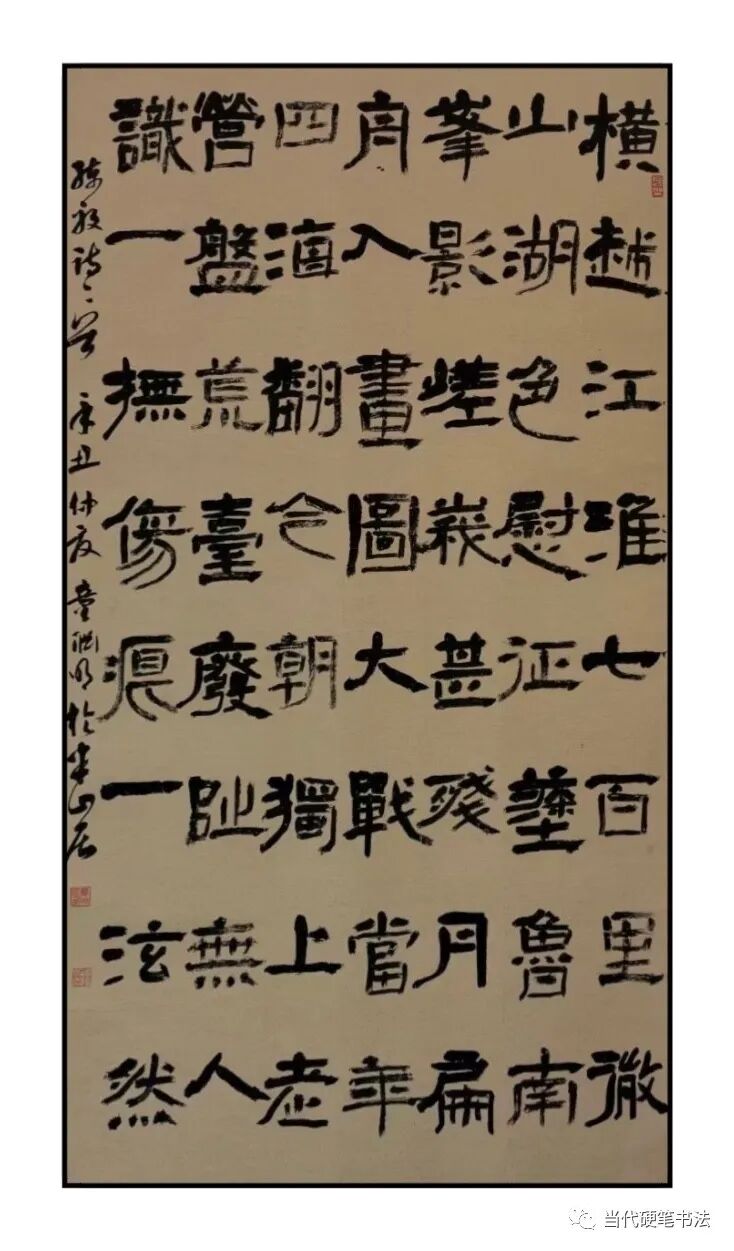 橫越江淮七百里微
山湖色慰征塵魯南
峯影嵯峨甚殘月扁
舟入畫圖大戰當年
四海翻今朝獨上老
營盤荒臺廢址無人
識一撫傷痕一泫然
陳毅詩一首 辛丑仲夏 童 明於半山居
当代硬笔书法